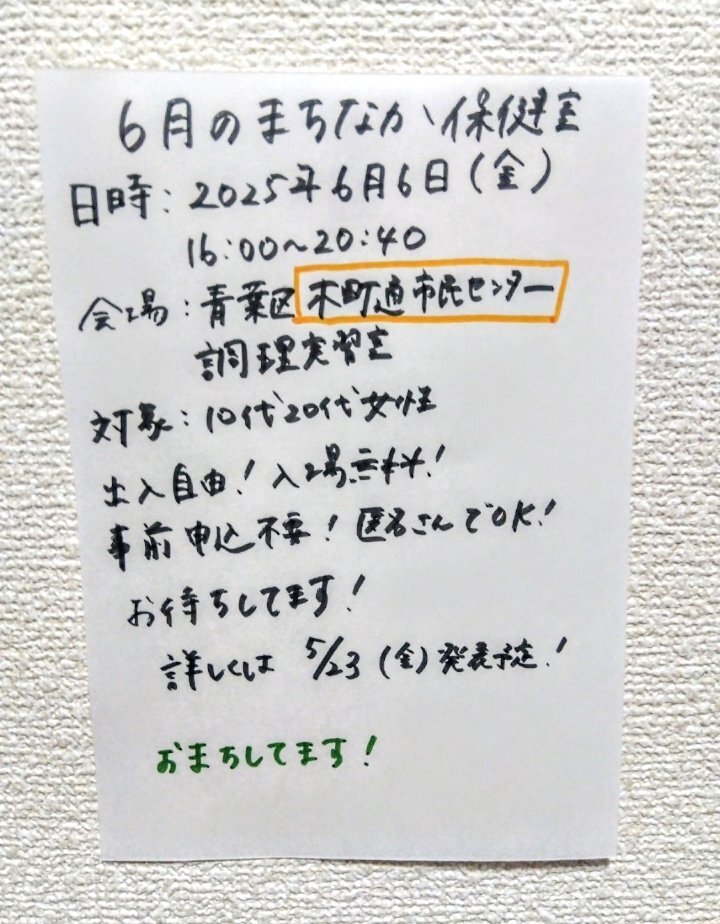 6月のまちなか保健室
日時：2025年6月6日（金）
16:00〜20:40
会場：青葉区木町通市民センター
調理実習室
対象：10代20代女性
出入自由！入場無料！
事前申込不要！匿名さんでOK！
お待ちしてます！
詳しくは 5/23（金）発表予定！
おまちしてます！